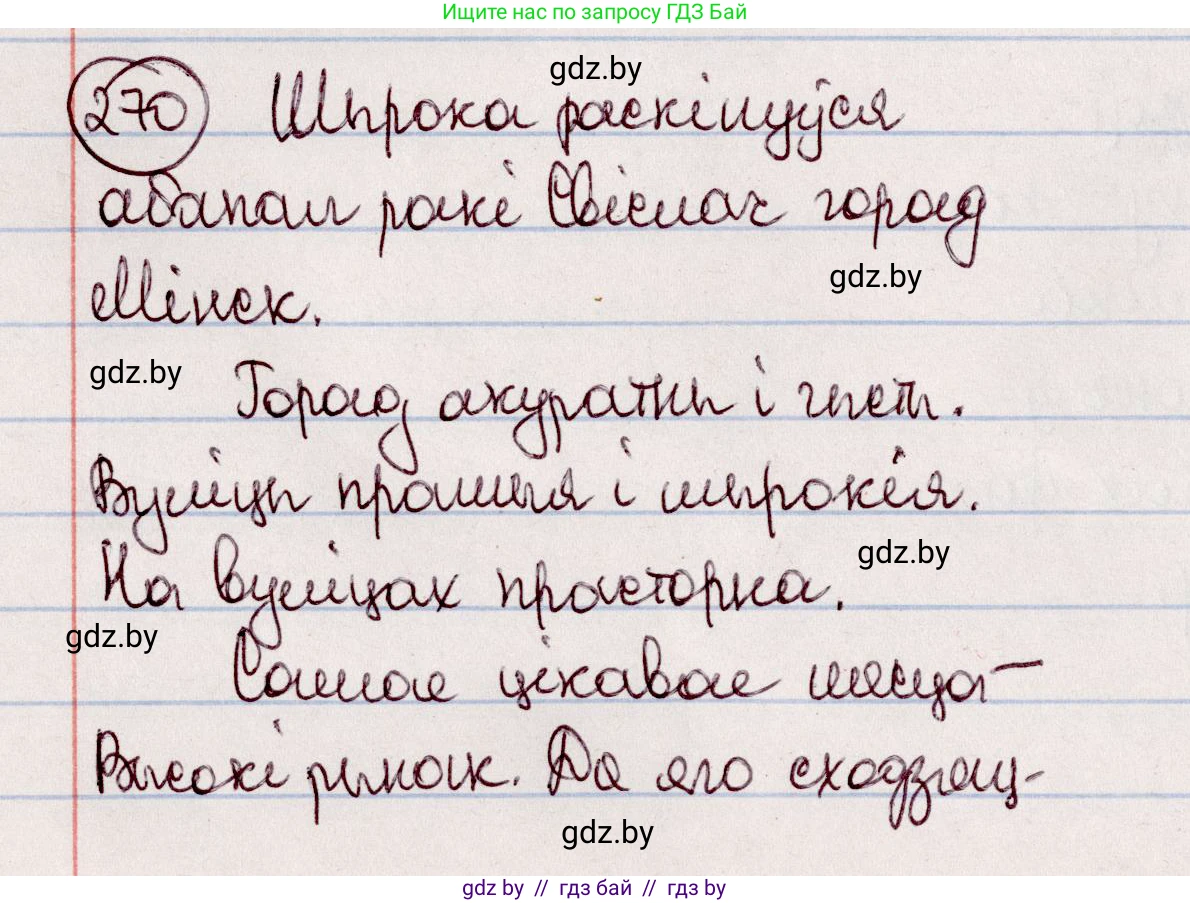 Ищите нас по запросу ГДЗ Бай
gdz.by
270 Шырока раскінуўся
абапал ракі Свіслач горад
gdz.by
Мінск.
gdz.by
Горад акуратны і чысты.
Вуліцы прамыя і шырокія.
gdz.by
На вуліцах прасторна.
gdz.by
Самае цікавае месца –
Высокі рынак. Да яго сходзяц-
gdz.by
gdz by // гдз бай // гдз by